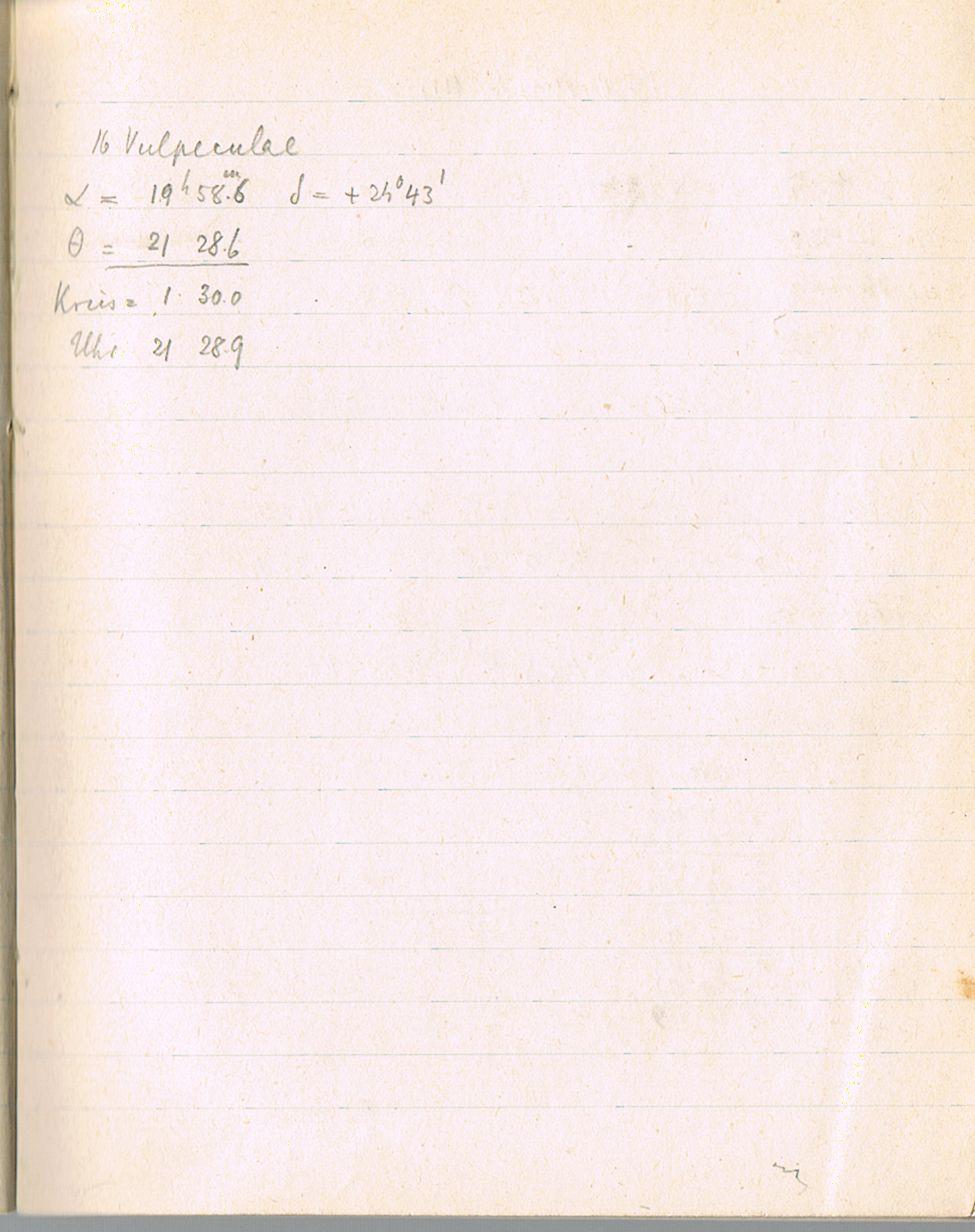 16 Vulpeculae
α = 19ʰ 58.ᵐ6 δ = +24° 43'
θ = 21 28.6
Kreis = 1 30.0
Uhr 21 28.9